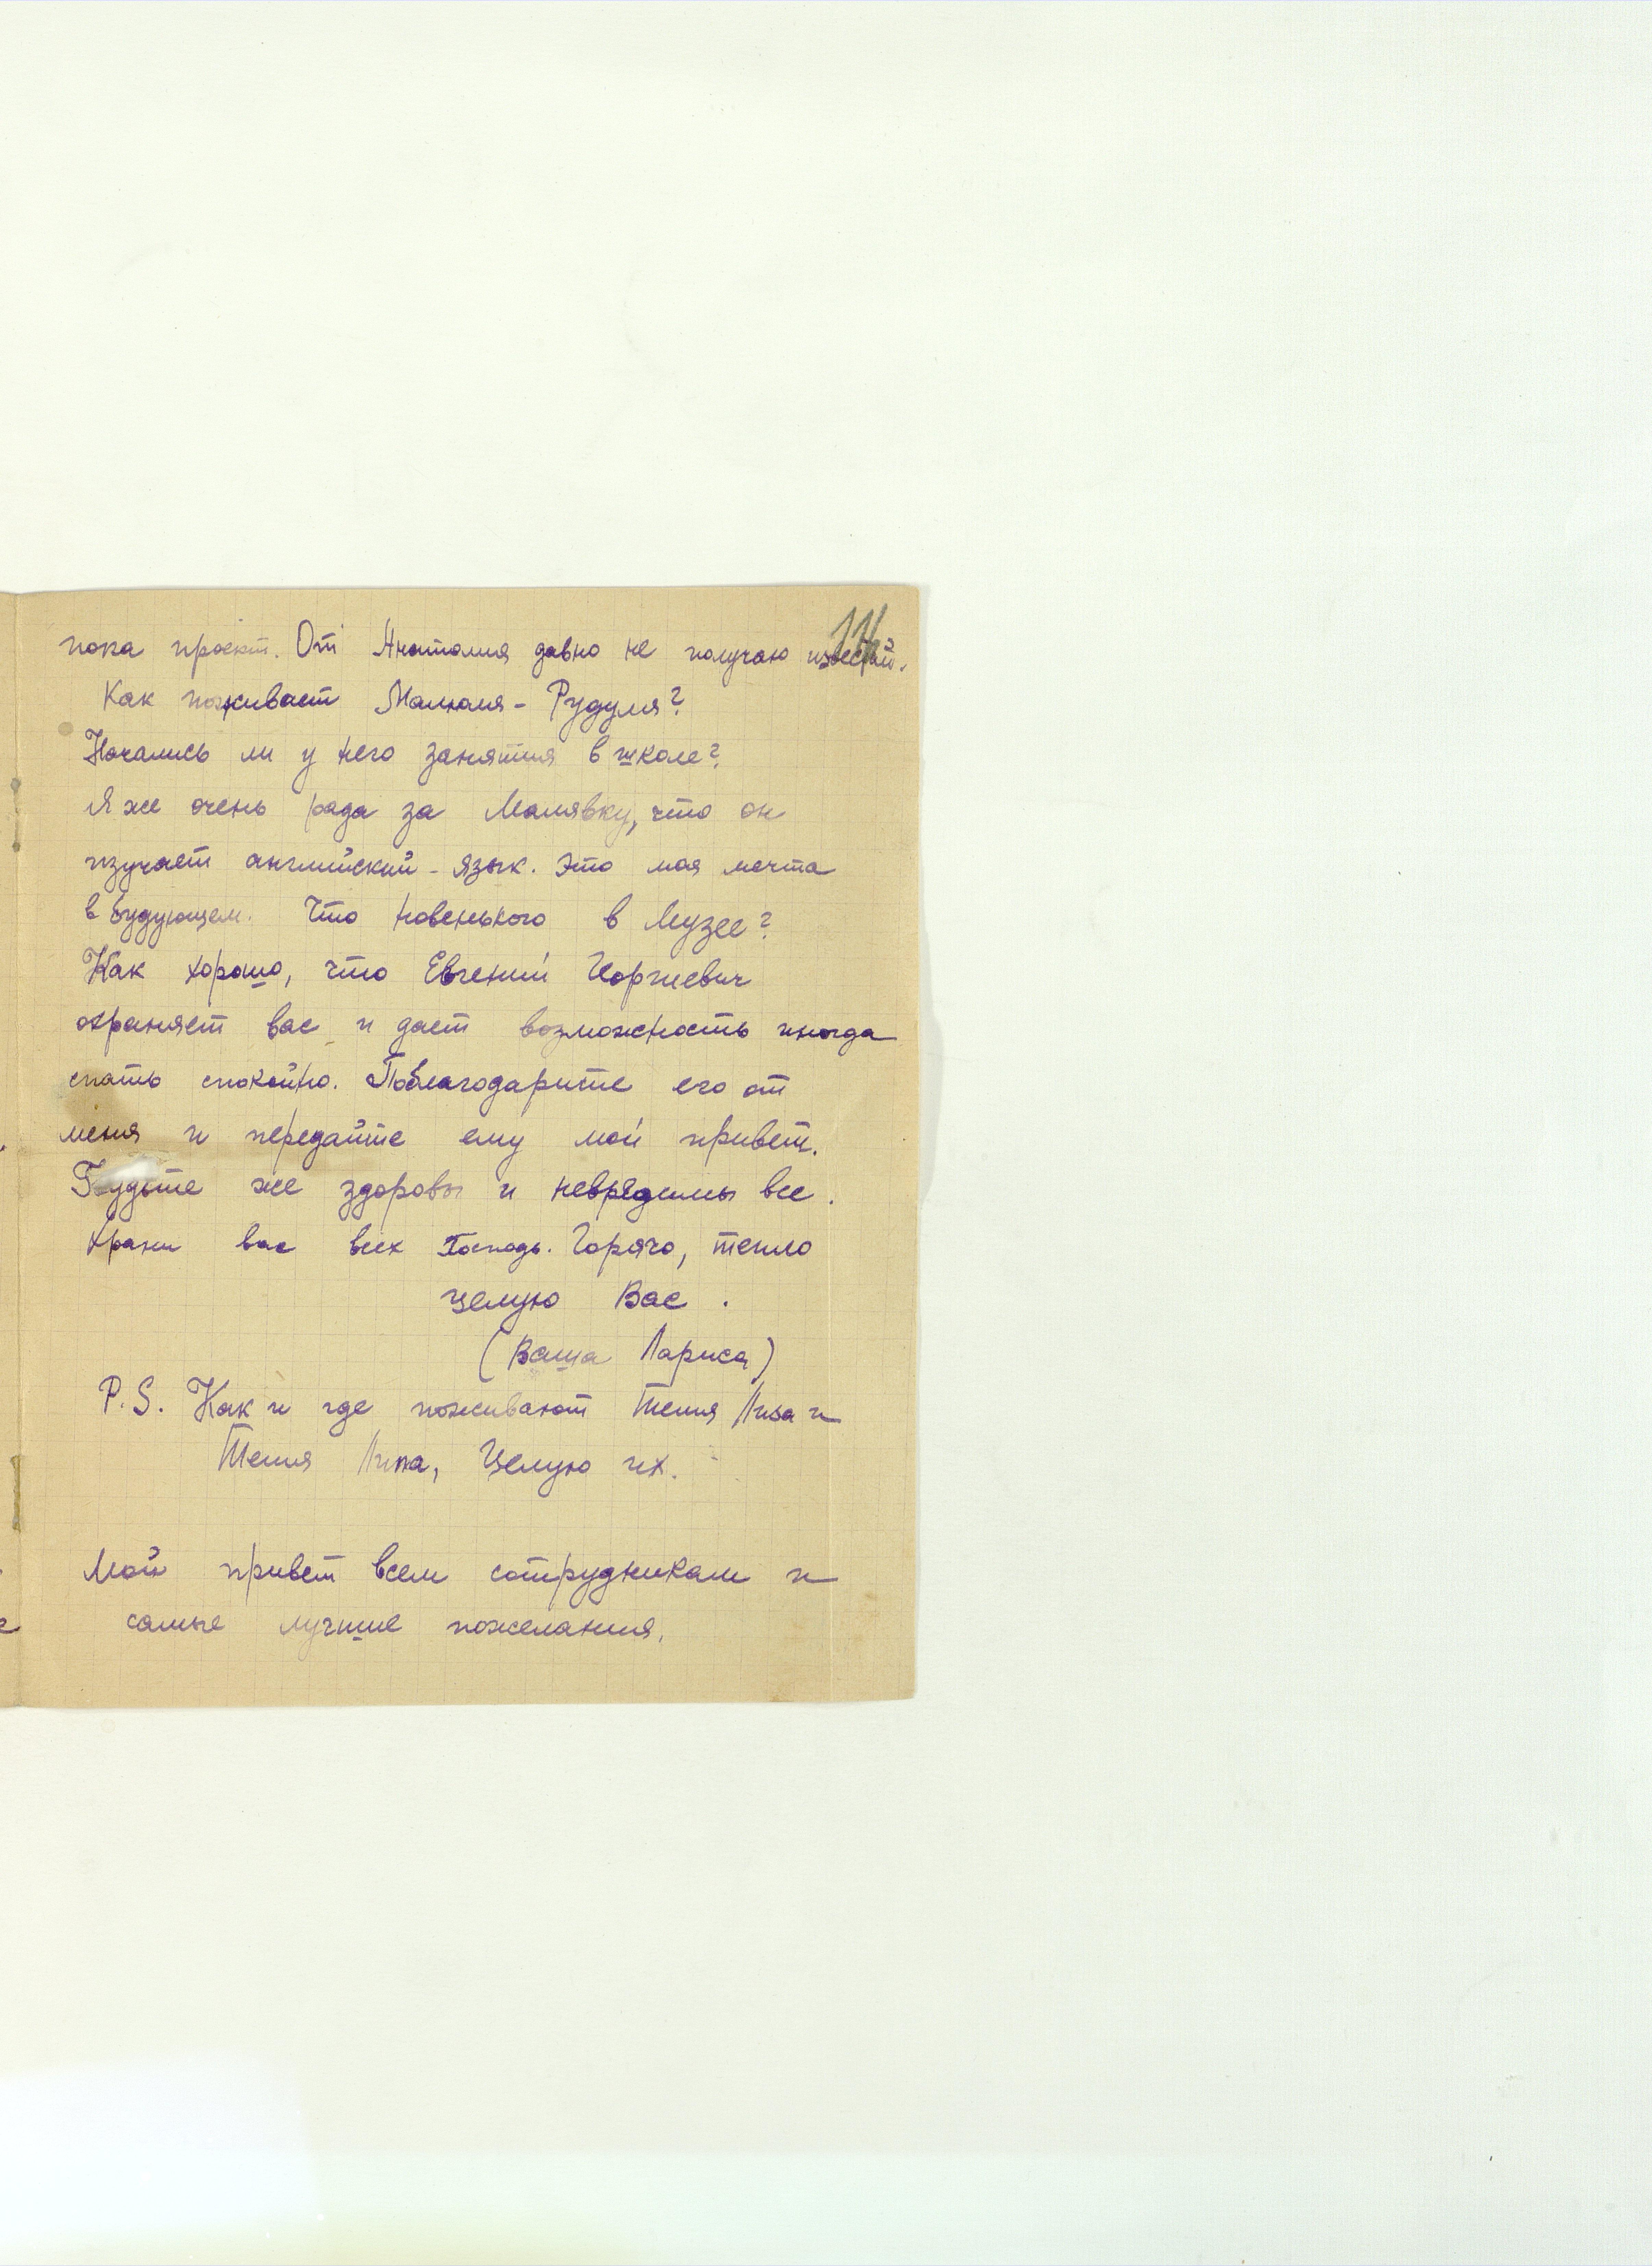 11
пока проект. От Анатолия давно не получаю известий.
Как поживает Малюля - Рудуля?
Начались ли у него занятия в школе?
Я же очень рада за Малявку, что он
изучает английский - язык. Это мая мечта
в будующем. Что новенького в Музее?
Как хорошо, что Евгений Георгиевич
охраняет вас и дает возможность иногда
спать спокойно. Поблагодарите его от
меня и передайте ему мой привет.
Будьте же здоровы и невредимы все.
Храни вас всех Господь. Горячо, тепло
целую Вас.
(Ваша Лариса)
P.S. Как и где поживают Тетя Лиза и
Тетя Липа, Целую их.
Мой привет всем сотрудникам и
самые лучшие пожелания.